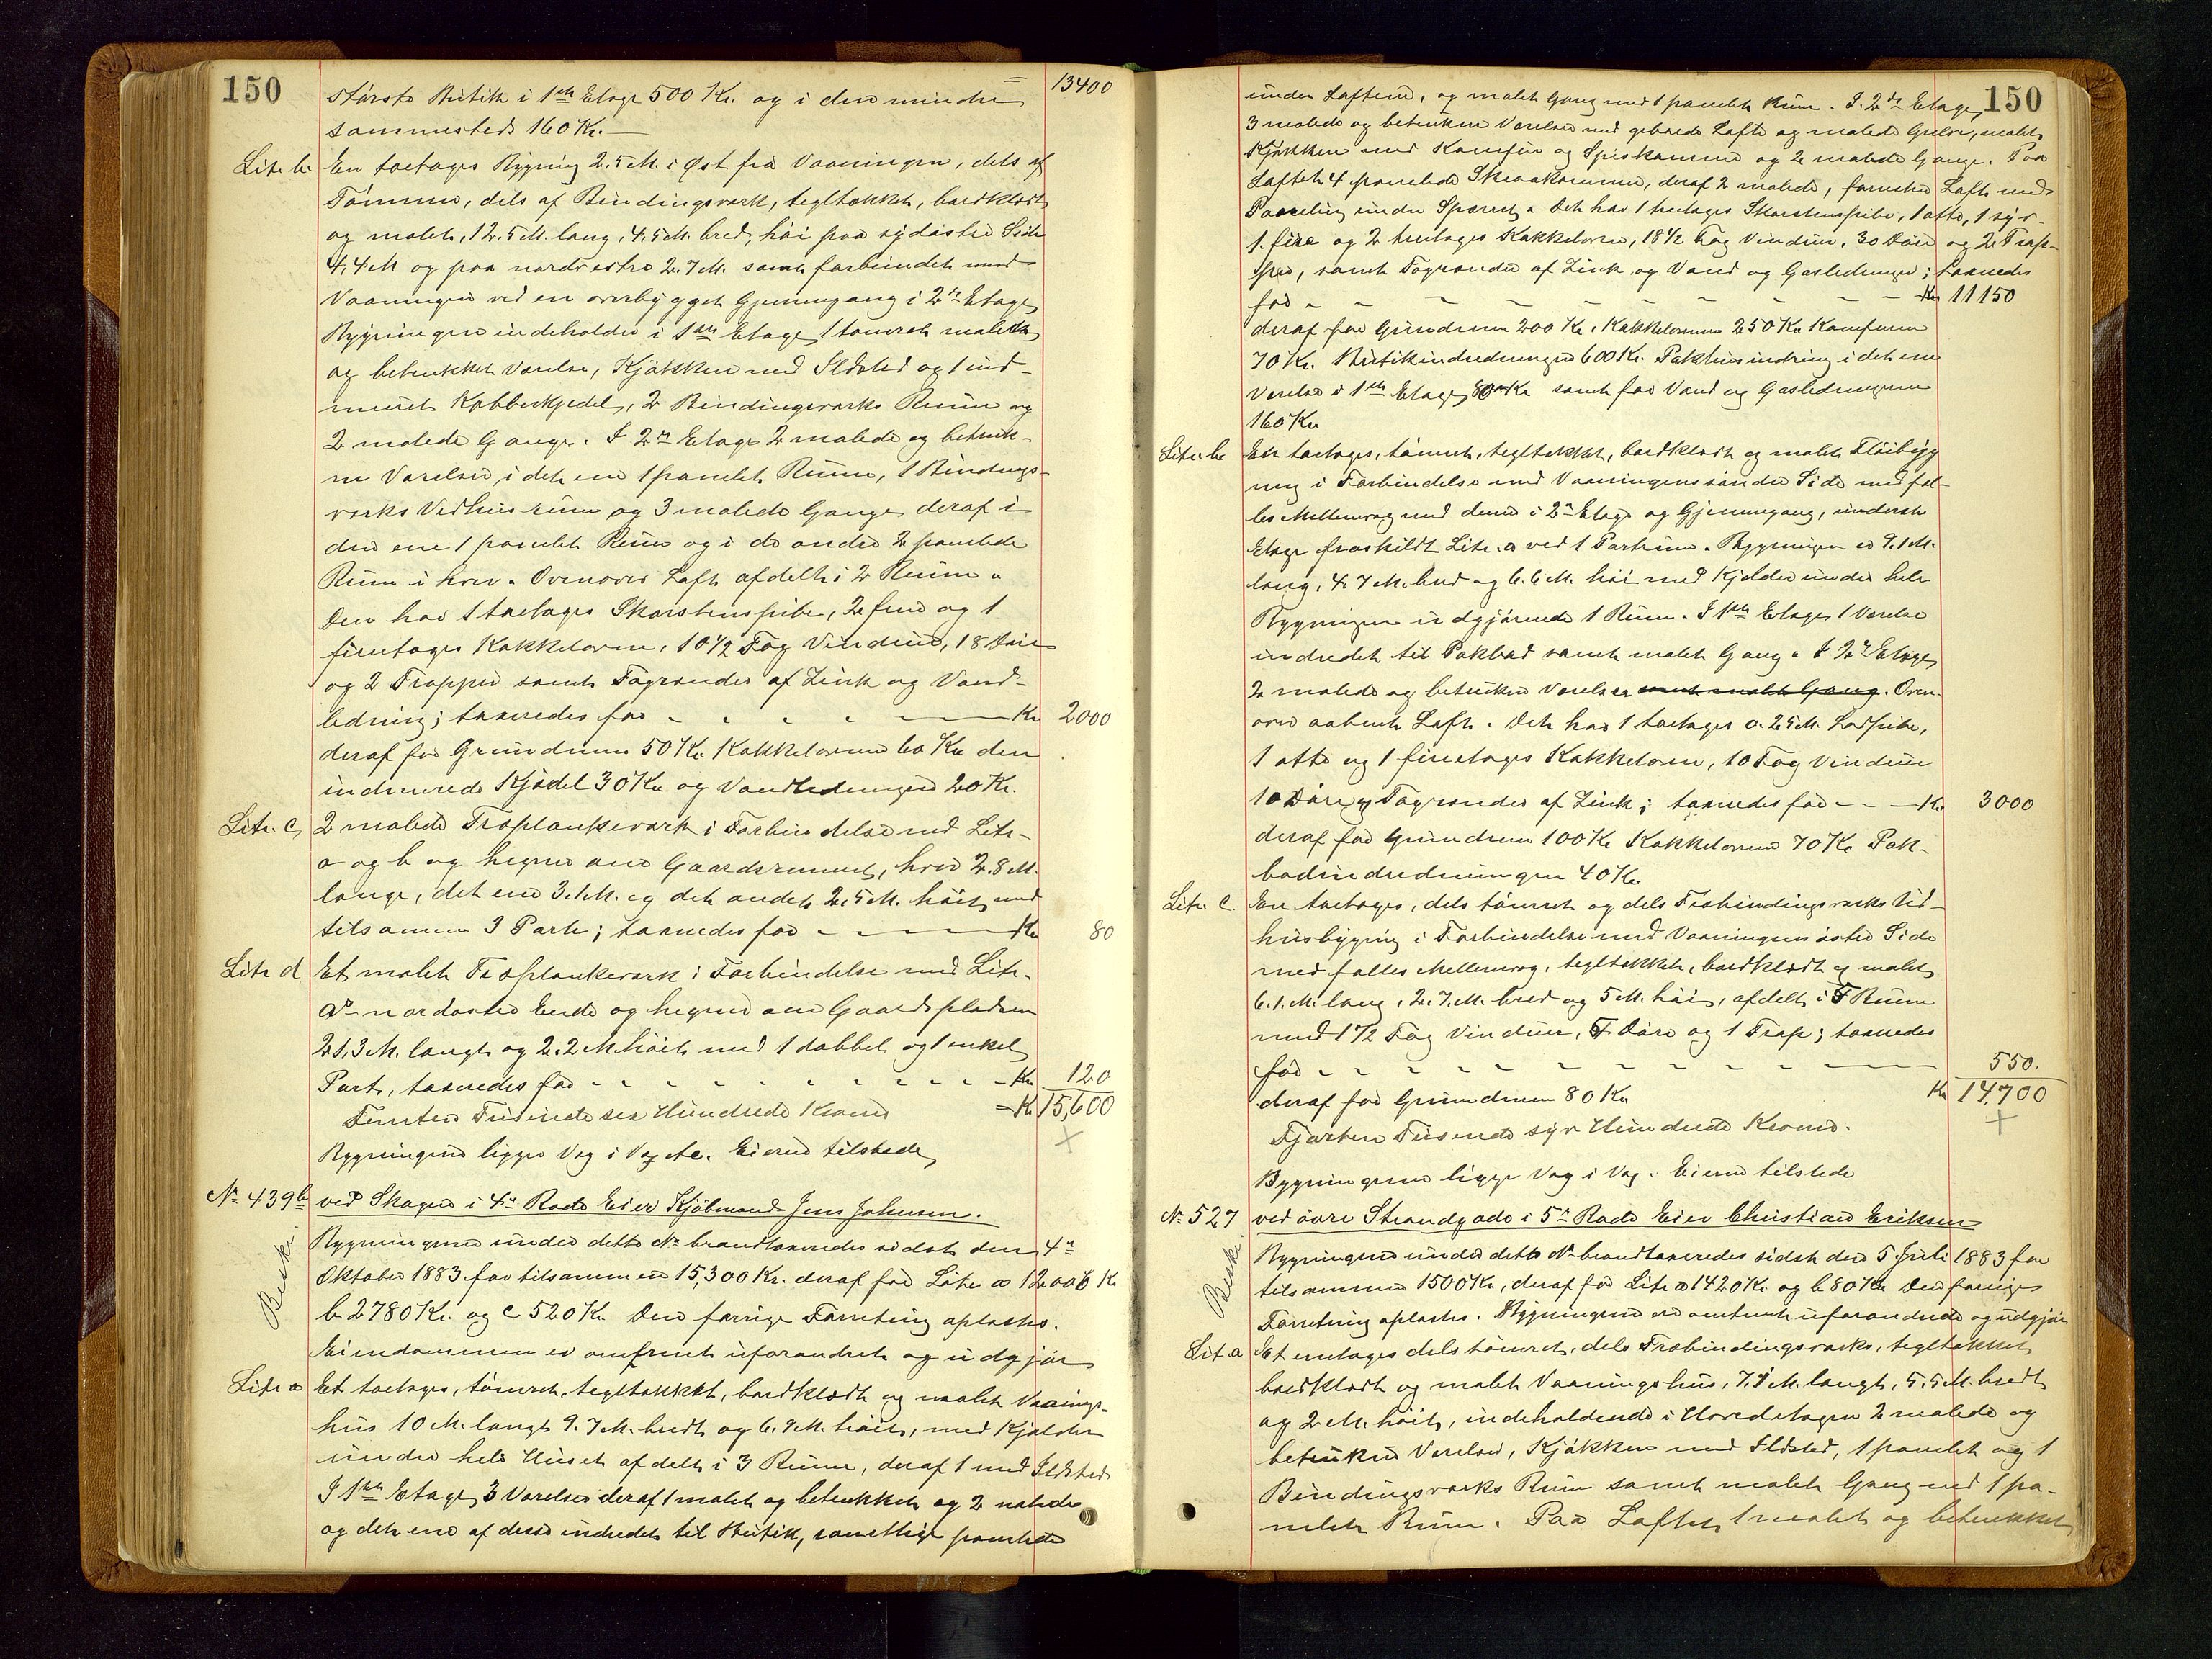 150
største Butik i 1ste Etage 500 Kr. og i den mindre 13400
sammesteds 160 Kr.
Litr. b. En toetages Bygning 2.5 M. i Øst fra Vaaningen, dels af
Tømmer, dels af Bindingsværk, tegltækket, bordklædt
og malet, 12.5 M. lang, 4.5 M. bred, høi paa sydøstre Side
4.4 M og paa nordvestre 2.7 M. samt forbundet med
Vaaningen ved en overbygget Gjennemgang i 2den Etage
Bygningen indeholder i 1ste Etage 1 tømret malet
og betrukket Værelse, Kjøkken med Ildsted og 1 ind-
muret Kobberkjedel, 2 Bindingsværks Rum og
2 malede Gange. I 2den Etage 2 malede og betruk-
ne Værelser, i det ene 1 panelet Rum, 1 Bindings-
værks Vedhusrum og 3 malede Gange deraf i
den ene 1 panelet Rum og i de andre 2 panelede
Rum i hver. Ovenover Loft afdelt i 2 Rum.
Den har 1 toetages Skorstenspibe, 2 fire og 1
fireetages Kakkelovne, 10 1/2 Fag Vinduer, 18 Døre
og 2 Trapper samt Tagrender af Zink og Vand-
ledning; taxeredes for - - - - - Kr 2000
deraf for Grundmur 50 Kr. Kakkelovne 60 Kr den
indmurede Kjedel 30 Kr og Vandledningen 20 Kr.
Litr. c, 2 malede Træplankeværk i Forbindelse med Litr.
a og b og hegner om Gaardsrummet, hver 2.8 M.
lange, det ene 3.1 M. og det andet 2.5 M. høit, med
tilsammen 3 Porte; taxeredes for - - - - Kr 80
Litr d Et malet Træplankeværk i Forbindelse med Litr.
a's nordøstre Ende og hegner om Gaardspladsen
21.3 M. langt og 2.2 M. høit med 1 dobbel og 1 enkel
Port, taxeredes for - - - - - - - - - - Kr 120
Femten Tusinde sex Hundrede Kroner = Kr 15,600
Bygningerne ligger Væg i Væg etc. Eieren tilstede,
No 439b ved Skagen i 4de Rode Eier Kjøbmand Jens Johnsen.
Beski.
Bygningerne under dette No brandtaxeredes sidst den 4de
Oktober 1883 for tilsammen 15,300 Kr. deraf for Litr a 12000 Kr
b 2780 Kr. og c 520 Kr. Den forrige Forretning oplæstes.
Eiendommen er omtrent uforandret og udgjør
Litr a Et toetages, tømret, tegltækket, bordklædt og malet Vaanings-
hus 10 M. langt 9.7 M. bredt og 6.9 M. høit, med Kjælder
under hele Huset afdelt i 3 Rum, deraf 1 med Ildsted
I 1ste Etage 3 Værelser deraf 1 malet og betrukket og 2 malede
og det ene af disse indredet til Butik, samtlige panelede
150
under Lofterne, og malet Gang med 1 panelet Rum. I 2den Etage
3 malede og betrukne Værelser med gibsede Lofte og malede Gulve, malet
Kjøkken med Komfur og Spiskammer og 2 malede Gange. Paa
Loftet 4 panelede Skraakammer, deraf 2 malede, forresten Loft med
Paneling under Sperret. Det har 1 treetages Skorstenspibe, 1 otte, 1 syv-
1 fire og 2 treetages Kakkelovne, 18 1/2 Fag Vinduer, 30 Døre og 2 Trap-
per, samt Tagrender af Zink og Vand og Gasledninger; taxeredes
for - - - - - - - - - - Kr 11150
deraf for Grundmur 200 Kr. Kakkelovnene 250 Kr Komfuren
70 Kr. Butikindredningen 600 Kr. Pakhusindredning i det ene
Værelse i 1ste Etage 80 Kr samt for Vand og Gasledningerne
160 Kr
Litr. b En toetages, tømret, tegltækket, bordklædt og malet Fløibyg
ning i Forbindelse med Vaaningens søndre Side med fæl-
les Mellemvæg med denne i 2den Etage og Gjennemgang, underste
Etage fraskildt Litr. a ved 1 Portrum. Bygningen er 9.1 M.
lang, 4.7 M. bred og 6.6 M. høi med Kjelder under hele
Bygningen udgjørende 1 Rum. I 1ste Etages 1 Værelse
indredet til Pakbod samt malet Gang. I 2den Etage
2 malede og betrukne Værelser samt malet Gang. Oven-
over aabent Loft. Det har 1 toetages a. 25 M. Lodpibe,
1 otte og 1 fireetages Kakkelovne, 10 Fag Vinduer
10 Døre og Tagrender af Zink; taxeredes for - - - Kr 3000
deraf for Grundmur 100 Kr Kakkelovnene 70 Kr Pak-
bodindredningen 40 Kr.
Litr. c. En toetages, dels tømret og dels Træbindingsværks Ud-
husbygning i Forbindelse med Vaaningens østre Side
med fælles Mellemvæg, tegltækket, bordklædt og malet,
6.1. M. lang, 2.7. M. bred og 5 M. høi, afdelt i 5 Rum
med 1 1/2 Fag Vinduer, 5 Døre og 1 Trap; taxeredes
for - - - - - - - - - - - 550.
deraf for Grundmur 80 Kr Kr 14,700
Fjorten Tusende syv Hundrede Kroner.
Bygningerne ligge Væg i Væg. Eieren tilstede
No 527 ved øvre Strandgade i 5te Rode Eier Christian Eriksen
Beski.
Bygningerne under dette No brandtaxeredes sidst den 5 Juli 1883 for
tilsammen 1500 Kr, deraf for Litr a 1420 Kr. og b 80 Kr Den forrige
Forretning oplæstes. Bygningerne ere omtrent uforandrede og udgjør
Lit. a Et enetages dels tømret, dels Træbindingsværks, tegltækket
bordklædt og malet Vaaningshus, 7,9 M. langt, 5.5 M. bredt
og 2 M. høit, indeholdende i Hovedetagen 2 malede og
betrukne Værelser, Kjøkken med Ildsted, 1 panelet og 1
Bindingsværks Rum samt malet Gang med 1 pa-
nelet Rum. Paa Loftet, 1 malet og betrukket